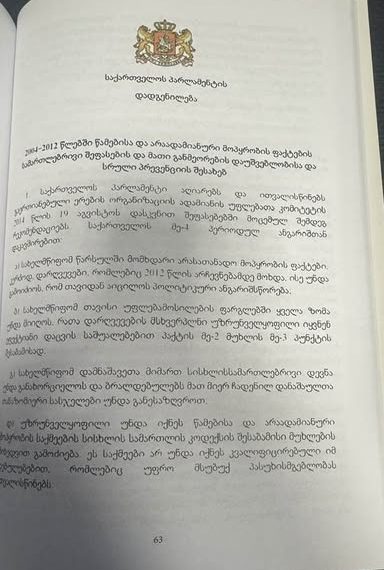 საქართველოს პარლამენტის
დადგენილება
2004-2012 წლებში წამებისა და არაადამიანური მოპყრობის ფაქტების
სამართლებრივი შეფასების და მათი განმეორების დაუშვებლობისა და
სრული პრევენციის შესახებ
1. საქართველოს პარლამენტი აღიარებს და ითვალისწინებს
გაერთიანებული ერების ორგანიზაციის ადამიანის უფლებათა კომიტეტის
2014 წლის 19 აგვისტოს დასკვნით შეფასებებში მოცემულ შემდეგ
რეკომენდაციებს საქართველოს მე-4 პერიოდულ ანგარიშთან
დაკავშირებით:
ა) სახელმწიფომ წარსულში მომხდარი არასათანადო მოპყრობის ფაქტები,
დარღვევები, რომლებიც 2012 წლის არჩევნებამდე მოხდა, ისე უნდა
გამოიძიოს, რომ თავიდან აიცილოს პოლიტიკური ანგარიშსწორება.
ბ) სახელმწიფომ თავისი უფლებამოსილების ფარგლებში ყველა ზომა
უნდა მიიღოს, რათა დარღვევების მსხვერპლნი უზრუნველყოფილი იყვნენ
ეფექტიანი დაცვის საშუალებებით პაქტის მე-2 მუხლის მე-3 პუნქტის
შესაბამისად.
გ) სახელმწიფომ დამნაშავეთა მიმართ სისხლისსამართლებრივი დევნა
უნდა განახორციელოს და ბრალდებულებს მათ მიერ ჩადენილ დანაშაულთა
თანაზომიერი სასჯელები უნდა განესაზღვროთ.
დ) უზრუნველყოფილი უნდა იქნეს წამებისა და არაადამიანური
მოპყრობის საქმეების სისხლის სამართლის კოდექსის შესაბამისი მუხლების
გამოძიება. ეს საქმეები არ უნდა იქნეს კვალიფიცირებული იმ
მუხლებით, რომლებიც უფრო მსუბუქ პასუხისმგებლობას
ითვალისწინებს.
63